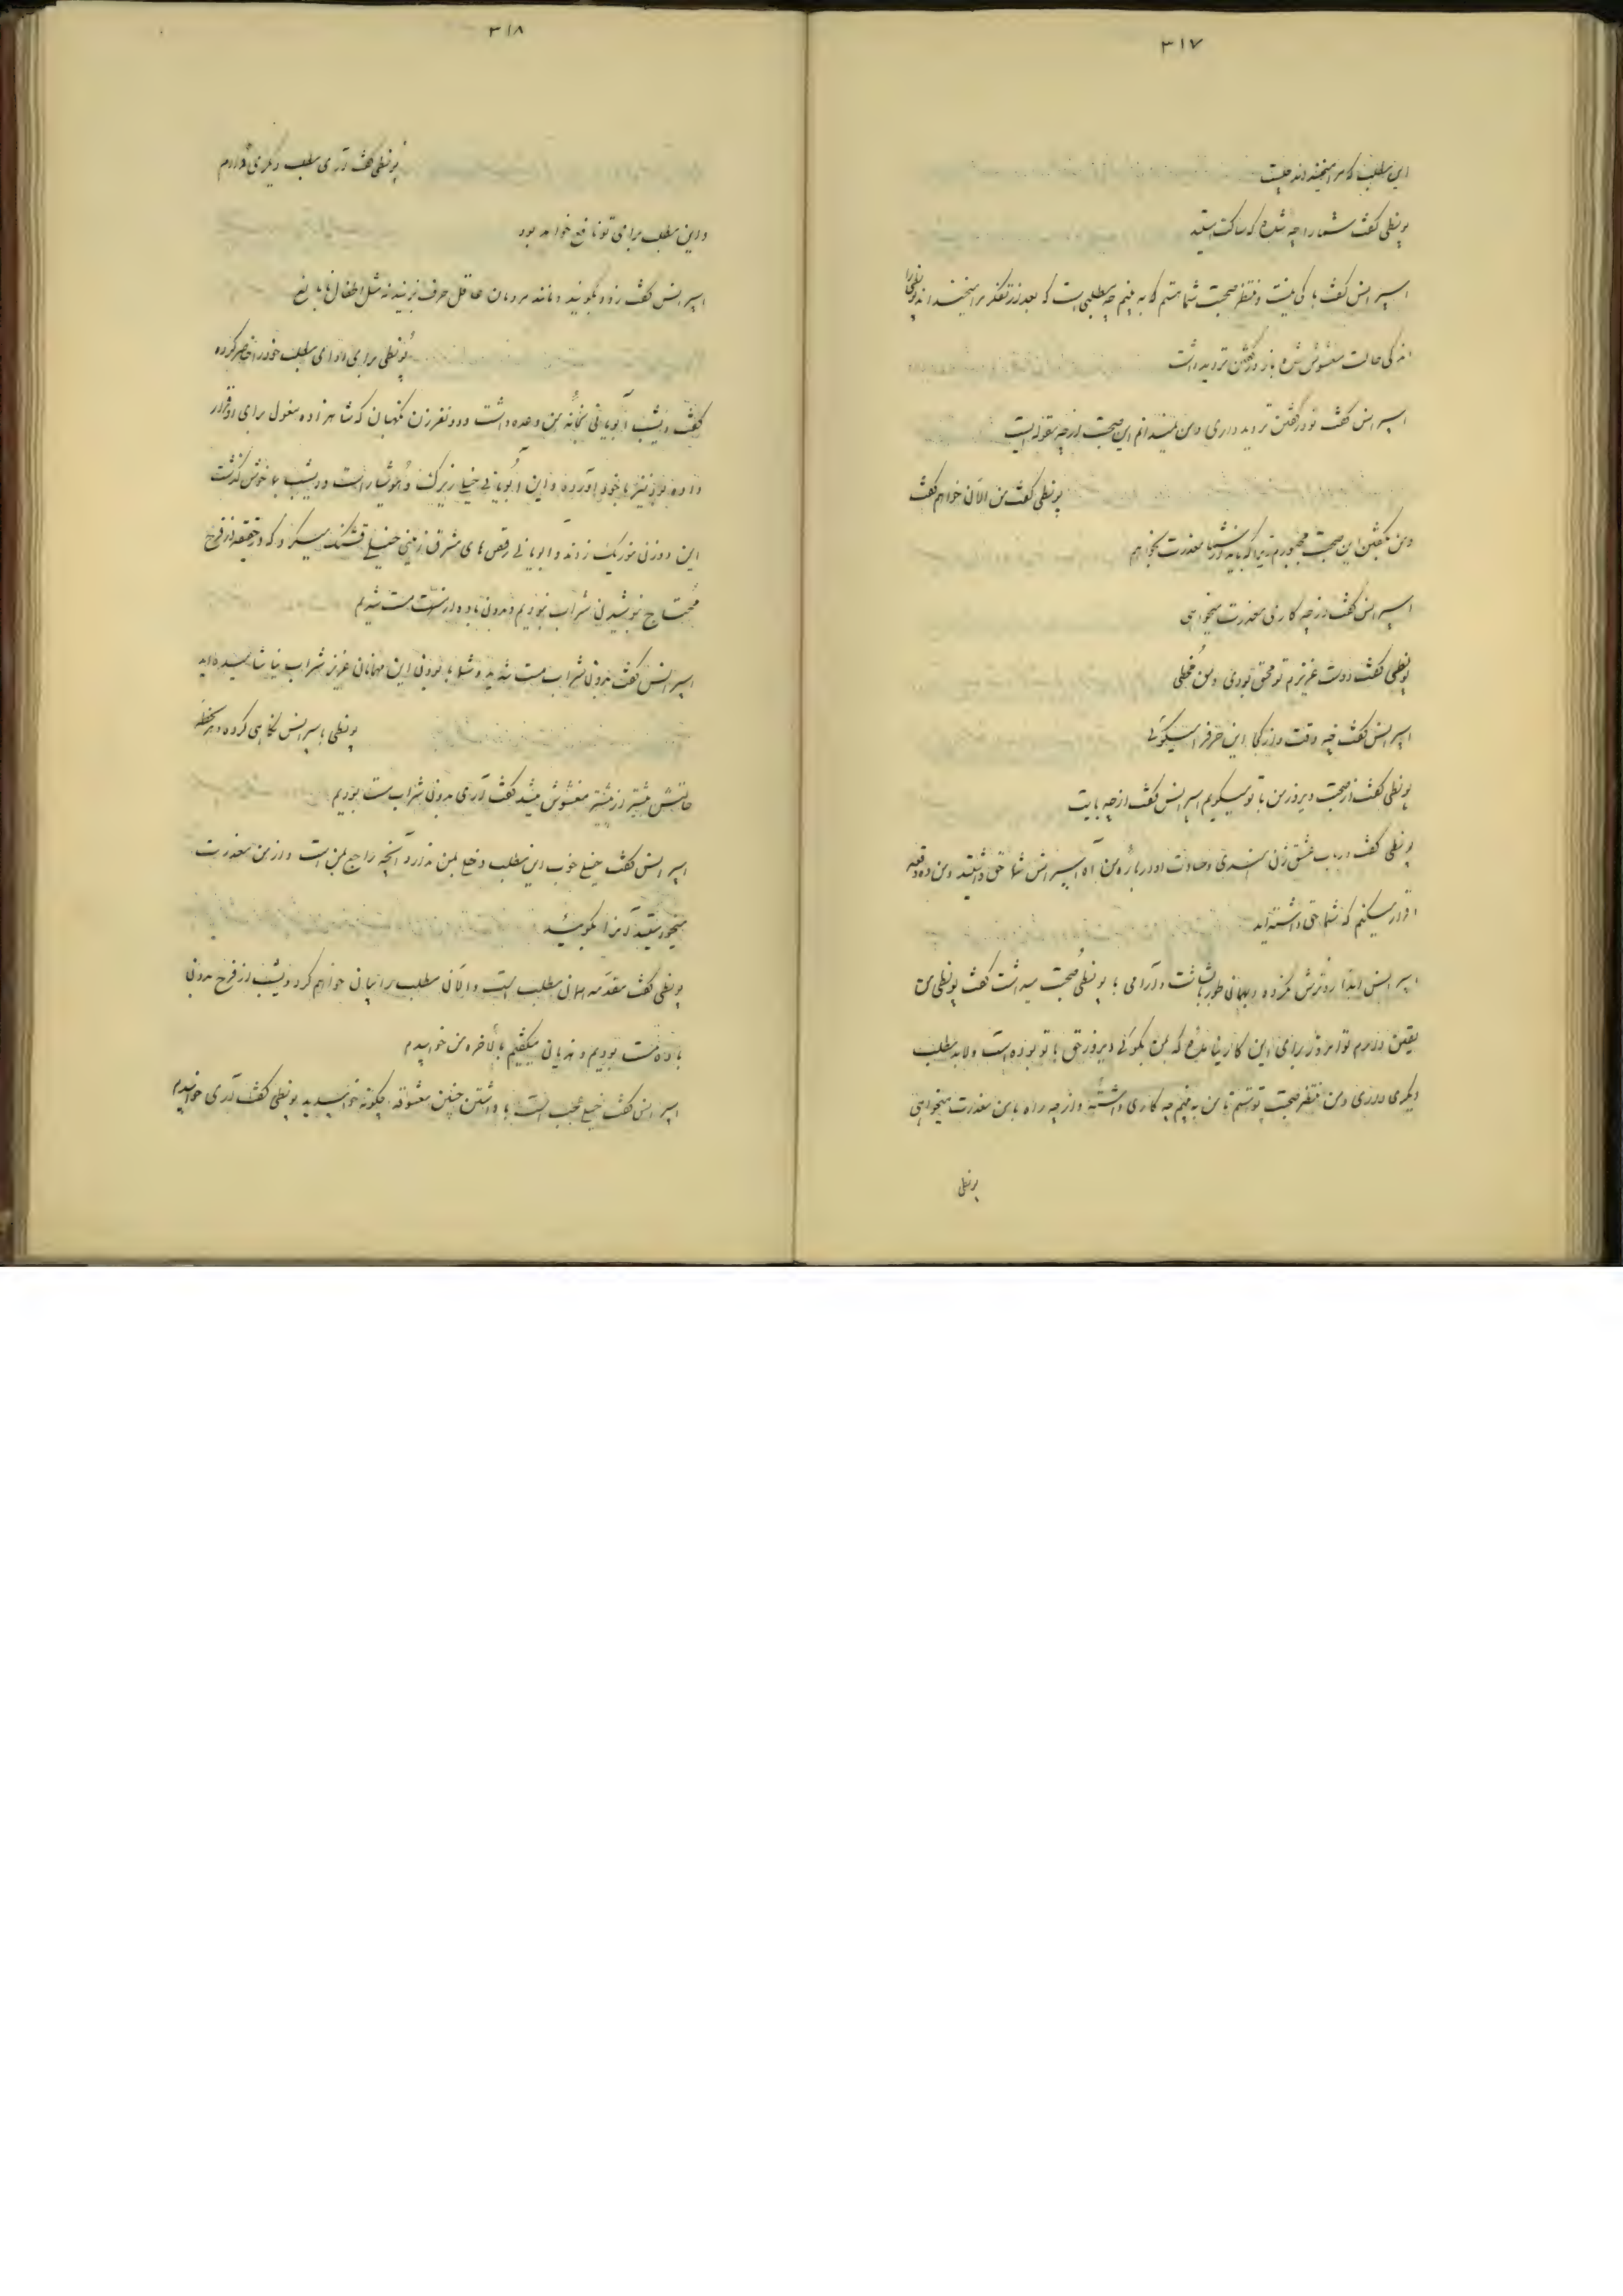 ۳۱۷
این مطلب که مرا میخنداند چیست
پونطی گفت شما را چه شده که ساکت هستید
اسپرانس گفت باکی نیست و منتظر صحبت شما هستم که به بینم چه مطلبی است که بعد از تفکر مرا میخنداند پونطی را
اندکی حالت مغشوش شده باز در گفتن تردید داشت
اسپرانس گفت تو در گفتن تردید داری و من نمیدانم این صحبت از چه مقوله است
پونطی گفت من الآن خواهم گفت
و من بگفتن این صحبت مجبورم زیرا که باید از شما معذرت بخواهم
اسپرانس گفت از چه کار معذرت میخواهی
پونطی گفت دوست عزیزم تو محق بودی و من مخطی
اسپرانس گفت چه وقت و از کجا این حرف را میگوئی
پونطی گفت از صحبت دیروز من با تو میگویم اسپرانس گفت از چه بابت
پونطی گفت در باب عشق زن هندی و حادت او درباره من آه اسپرانس شما حق داشتید و من ده دفعه
اقرار میکنم که شما حق داشته‌اید
اسپرانس ابدا رو ترش نکرده و بهمان طور بشاشت و آرامی با پونطی صحبت میداشت گفت پونطی من
یقین دارم تو امروز برای این کار نیامده که بمن بگوئی دیروز حق با تو بوده است و لابد مطلب
دیگری داری و من منتظر صحبت تو هستم تا من به بینم چه کاری داشته و از چه راه با من معذرت میخواهی
پونطی
۳۱۸
پونطی گفت آری مطلب دیگری دارم
و این مطلب برای تو نافع خواهد بود
اسپرانس گفت زود بگوئید و مانند مردمان عاقل حرف بزنید نه مثل اطفال نابالغ
پونطی برای ادای مطلب خود را حاضر کرده
گفت دیشب آبویانی بخانه من وعده داشت و دو نفر زن نگهبان که شاهزاده مغول برای او قرار
داده بود نیز با خود آورده و این آبویانی خیلی زیرک و هوشیار است و دیشب بما خوش گذشت
این دو زن موزیک زدند و آبویانی رقص‌های مشرق زمینی خیلی قشنگ میکرد که در حقیقه از فرح
محتاج نوشیدن شراب نبودیم و بدون باده از نشئت مست شدیم
اسپرانس گفت بدون شراب مست شدید و شما با بودن این مهمانان عزیز شراب نیاشامیده‌اید
پونطی باسپرانس نگاهی کرده و هر لحظه
حالتش بیشتر از پیشتر مغشوش میشد گفت آری بدون شراب مست بودیم
اسپرانس گفت خیلی خوب این مطلب دخلی بمن ندارد آنچه راجع بمن است و از من معذرت
میخواستید آنرا بگوئید
پونطی گفت مقدمه همان مطلب است و الآن مطلب را بیان خواهم کرد دیشب از فرح بدون
باده مست بودیم و هذیان میگفتیم بالاخره من خوابیدم
اسپرانس گفت خیلی عجب است با داشتن چنین معشوقه چگونه خوابیدید پونطی گفت آری خوابیدم